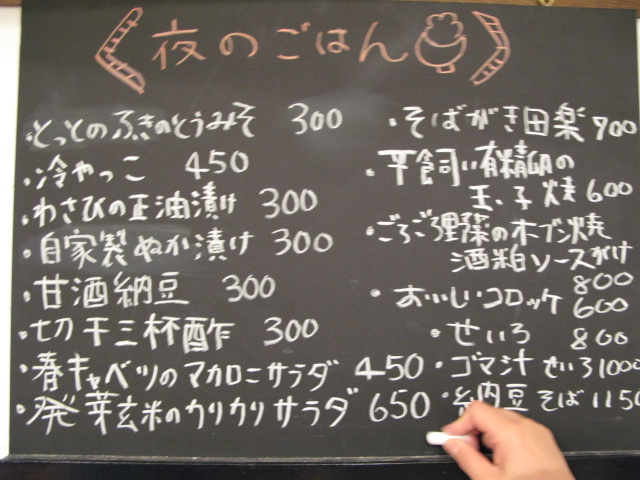 夜のごはん
・とっとのふきのとうみそ 300
・冷やっこ 450
・わさびの正油漬け 300
・自家製ぬか漬け 300
・甘酒納豆 300
・切干三杯酢 300
・春キャベツのマカロニサラダ 450
・発芽玄米のカリカリサラダ 650
・そばがき田楽 900
・平飼い有精卵の
玉子焼 600
・ごろごろ野菜のオーブン焼
酒粕ソースがけ
800
・おいしいコロッケ 600
・せいろ 800
・ゴマ汁せいろ 1000
・納豆そば 1150